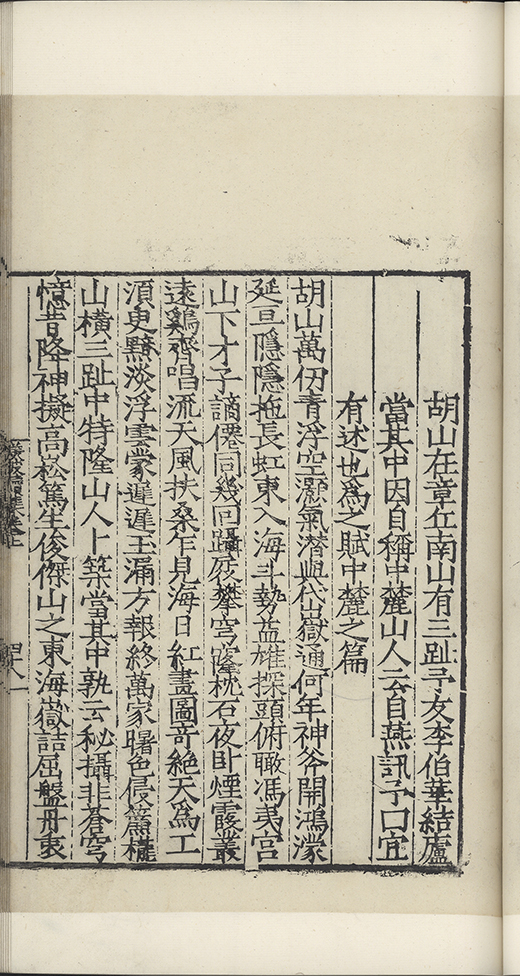 胡山在章丘南山有三趾予友李伯華結廬
當其中因自稱中麓山人云自燕訊予曰宜
有述也爲之賦中麓之篇
胡山萬仞青浮空灝氣潜與代嶽通何年神斧開鴻濛
延亘隱隱拖長虹東入海斗勢益雄探頭俯瞰馮夷宮
山下才子謫僊同幾回躡屐攀穹窿枕石夜卧煙霞叢
遠鷄齊唱流天風扶桑乍見海日紅畫圖奇絶天爲工
須臾黲淡浮雲蒙遲遲玉漏方報終萬家曙色侵簾櫳
山橫三趾中特隆山人卜築當其中孰云秘攝非蒼穹
憶昔降神擬高松篤生俊傑山之東海嶽詰屈盤丹衷